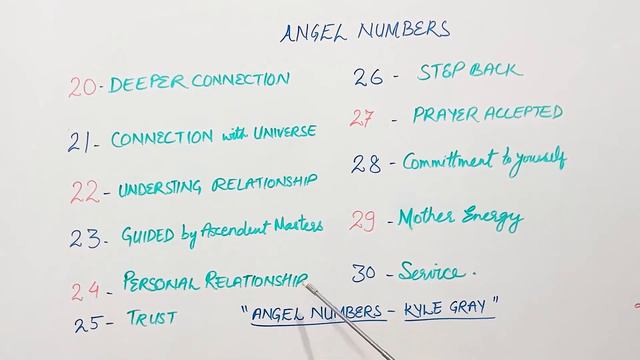 ANGEL NUMBERS
20 - DEEPER CONNECTION
21 - CONNECTION with UNIVERSE
22 - UNDERSTING RELATIONSHIP
23 - GUIDED by Ascendent Masters
24 - PERSONAL RELATIONSHIP
25 - TRUST
26 - STEP BACK
27 - PRAYER ACCEPTED
28 - Committment to yourself
29 - Mother Energy
30 - Service.
"ANGEL NUMBERS - KYLE GRAY"